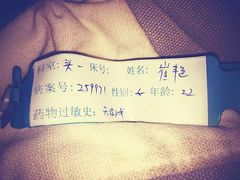 科室: 头一 床号: 姓名: 崔艳
病案号: 259971 性别: 女 年龄: 22
药物过敏史: